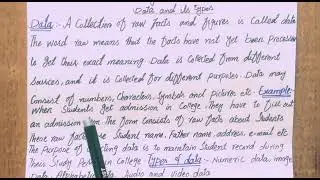 Data and its Types
Data:- A Collection of raw facts and figures is Called data
The word raw means that the facts have not yet been Processed
to get their exact meaning Data is Collected from different
Sources, and it is Colleted for different purposes. Data may
Consist of numbers, Characters, Symbols and Pictures etc Example
When Students get admission in College. They have to fill out
an admission Form. The form Consists of raw facts about Students
These raw facts Student name, Father name, address, e-mail etc
The Purpose of Collecting data is to maintain Student record during
their Study Period College Types of data:- Numeric data, image
Data, Audio and Video data